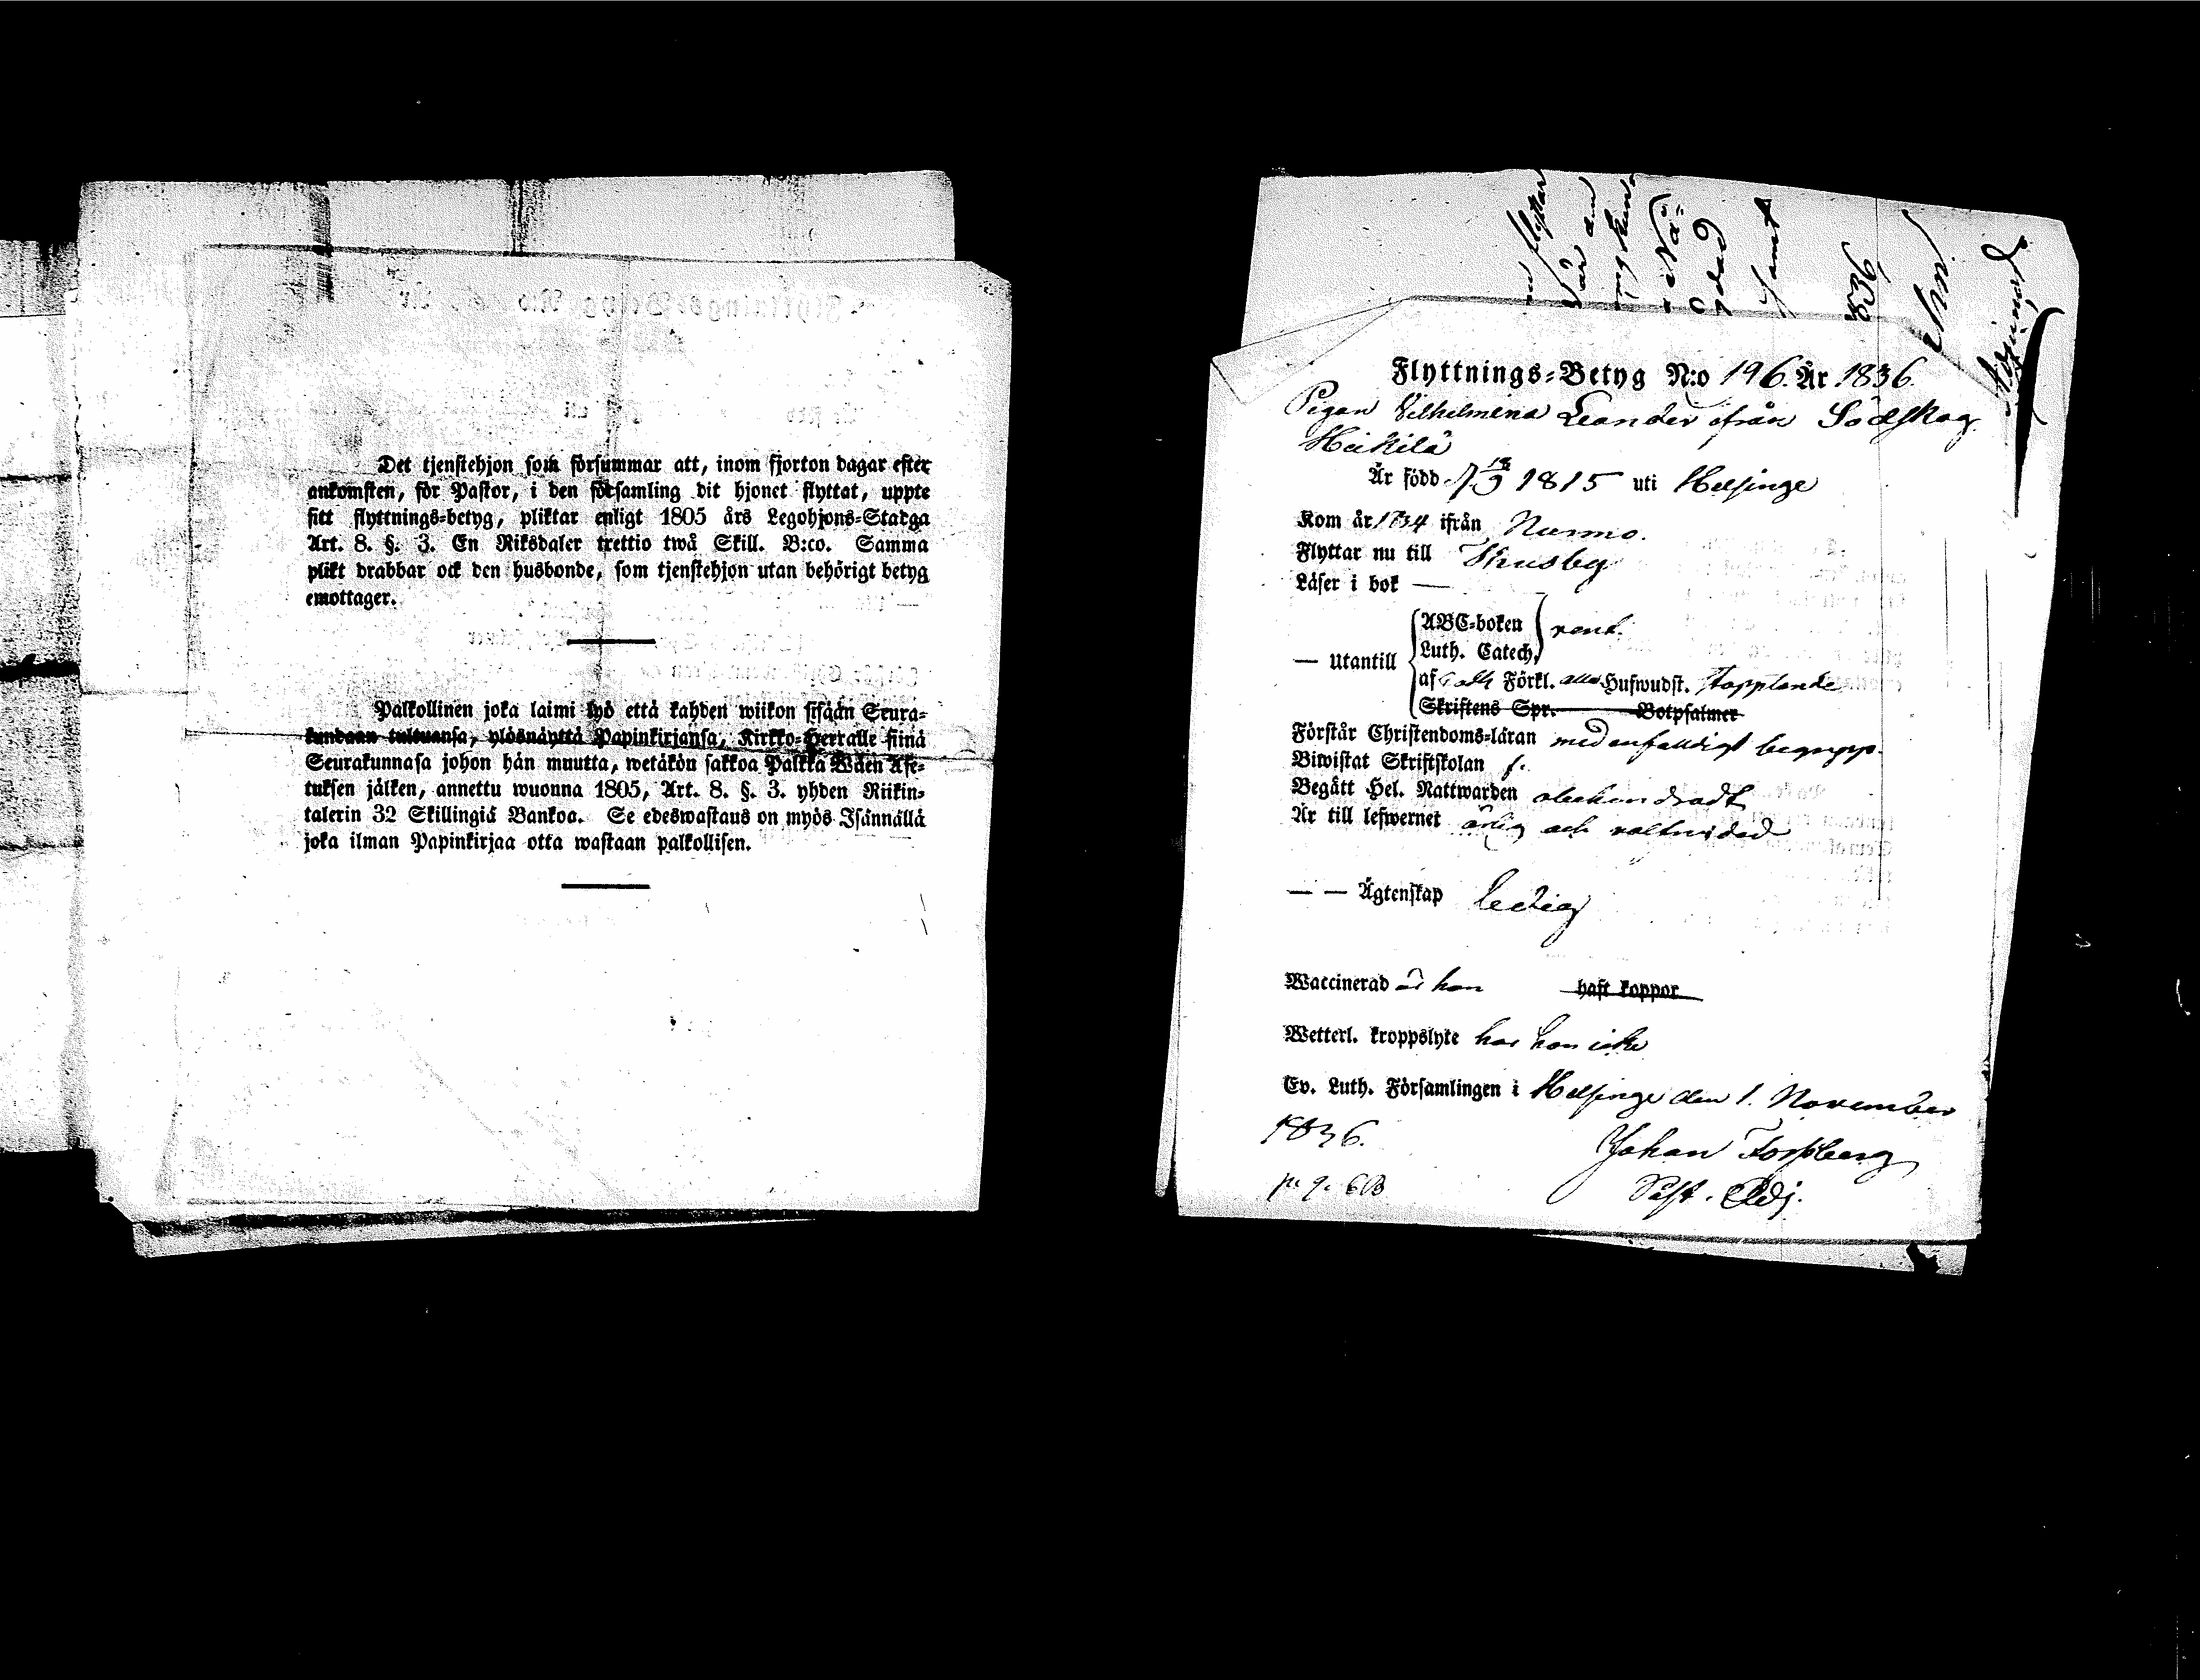 Det tjenstehjon som försummar att, inom fjorton dagar efter
ankomsten, för Pastor, i den församling dit hjonet flyttat, uppte
sitt flyttnings-betyg, pliktar enligt 1805 års Legohjons-Stadga
Art. 8. §. 3. En Riksdaler trettio twå Skill. B:co. Samma
plikt drabbar ock den husbonde, som tjenstehjon utan behörigt betyg
emottager.
Palkollinen joka laimi lyö että kahden wiikon sisään Seura-
kundaan tultuansa, ylösnäyttä Papinkirjansa, Kirkko-Herralle siinä
Seurakunnasa johon hän muutta, wetäkön sakkoa Palkka Wäen Ase-
tuksen jälken, annettu wuonna 1805, Art. 8. §. 3. yhden Riikin-
talerin 32 Skillingiä Bankoa. Se edeswastaus on myös Isännällä
joka ilman Papinkirjaa otta wastaan palkollisen.
flyttar
samt
1836
Adjunct
Flyttnings-Betyg N:o 196. År 1836.
Pigan Vilhelmina Leander ifrån Södskog
Heikilä
Är född 1815 uti Helsinge
Kom år 1834 ifrån Nurmo.
Flyttar nu till Thusby
Läser i bok —
— utantill
ABC-boken
Luth. Catech.
rent.
af Förkl. alla Hufwudst. stapplande
Skriftens Spr. Botpsalmer
Förstår Christendoms-läran med enfaldigt begrepp.
Biwistat Skriftskolan f.
Begått Hel. Nattwarden oklandradt
Är till lefwernet ärlig och välfrejdad
— — Ägtenskap ledig
Waccinerad är hon haft koppor
Wetterl. kroppslyte har hon icke
Ev. Luth. Församlingen i Helsinge den 1. November
1836.
Johan Forssberg
Past. Adj.